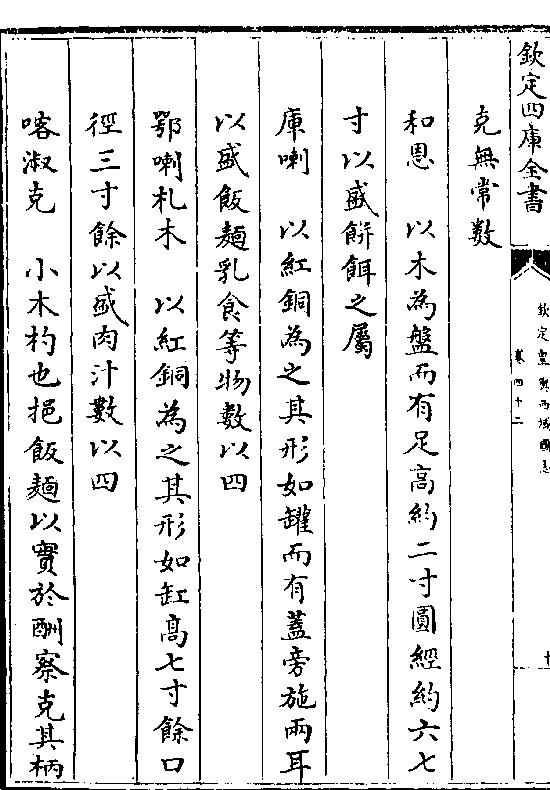 欽定四庫全書
欽定皇輿西域圖志
卷四十二
克無常數
和恩　以木為盤而有足高約二寸圓經約六七
寸以盛餅餌之屬
庫喇　以紅銅為之其形如罐而有蓋旁施兩耳
以盛飯麵乳食等物數以四
鄂喇札木　以紅銅為之其形如缸高七寸餘口
徑三寸餘以盛肉汁數以四
喀淑克　小木杓也挹飯麵以實於酬察克其柄